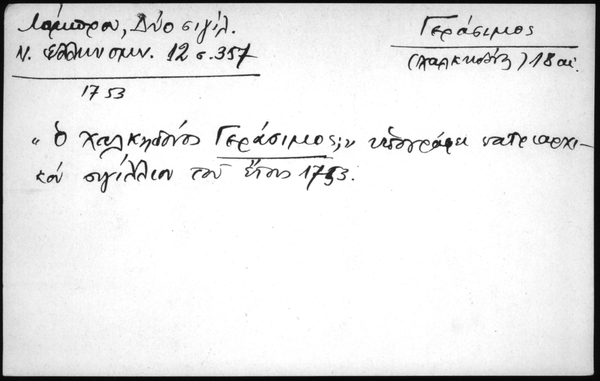 Λάμπρου, Δύο σιγίλ.
Ν. Ελληνομν. 12 σ. 357
1753
Γεράσιμος
(Χαλκηδών) 18 αι.
"Ο Χαλκηδόνος Γεράσιμος" υπογράφει πατριαρχι-
κόν σιγίλλιον του έτους 1753.